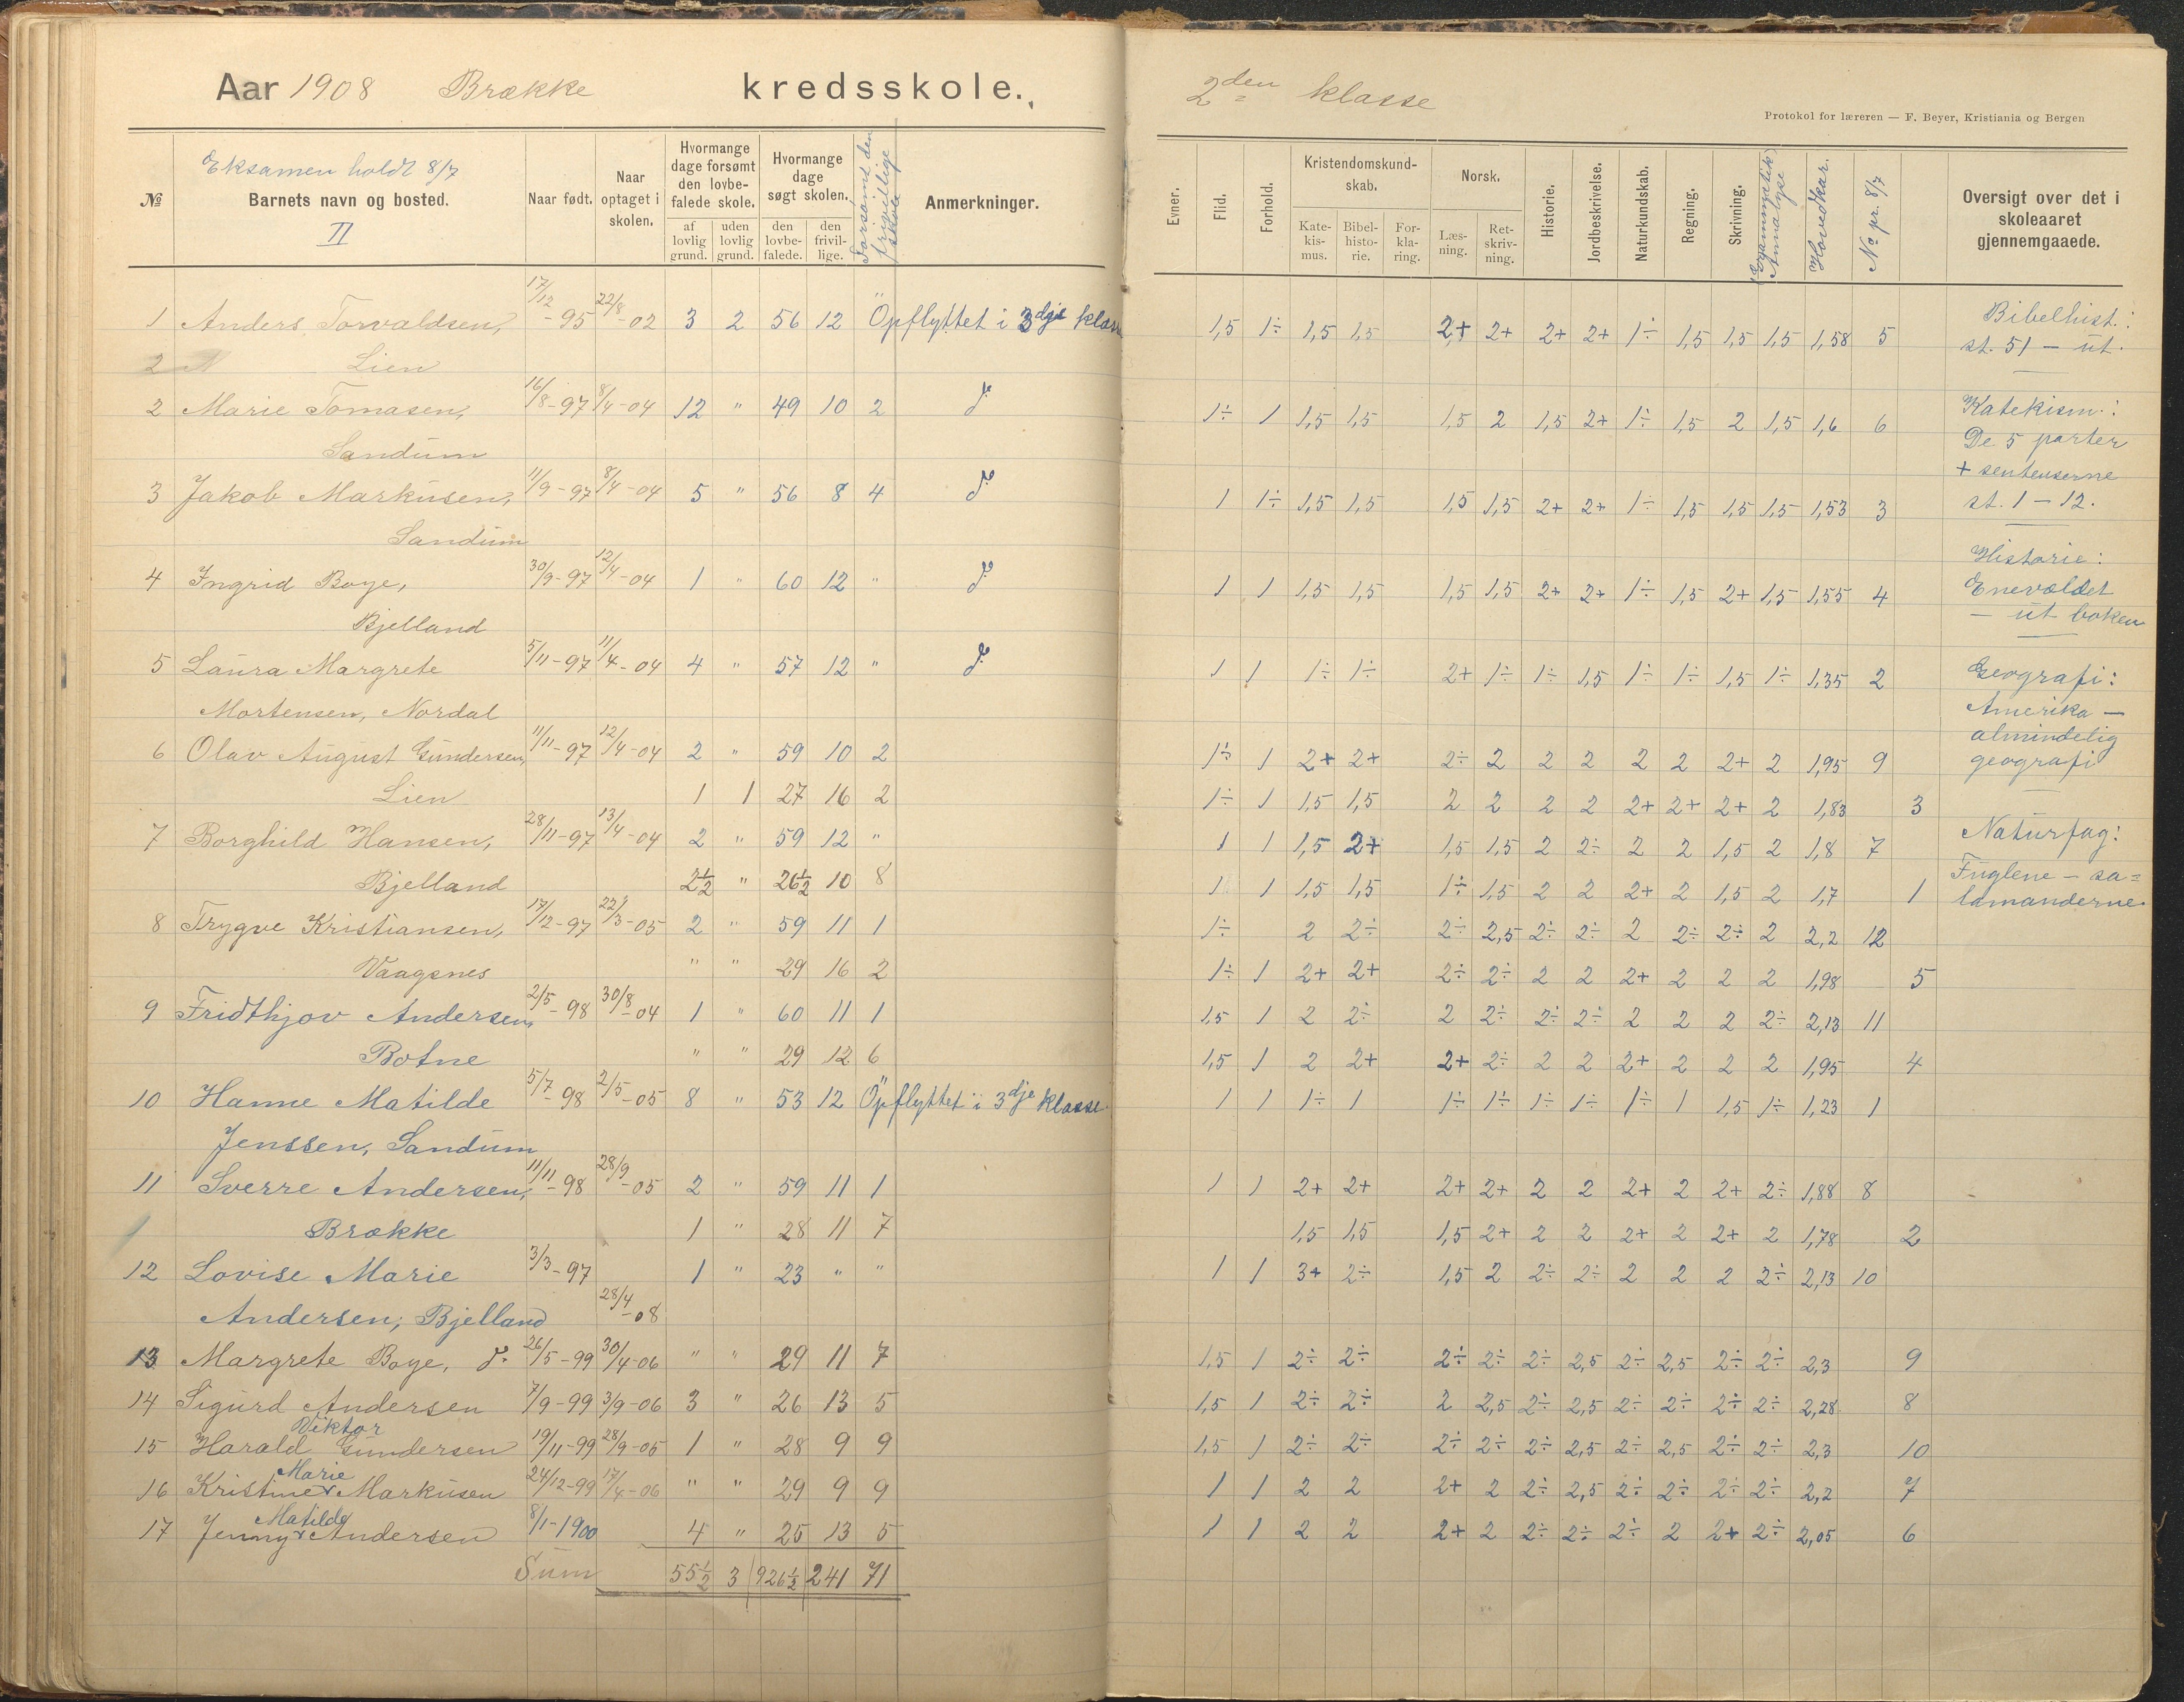 Aar 1908 Brække kredsskole.
№
Eksamen holdt 8/7
Barnets navn og bosted.
II
Naar født.
Naar optaget i skolen.
Hvormange dage forsømt den lovbefalede skole.
af lovlig grund.
uden lovlig grund.
Hvormange dage søgt skolen.
den lovbefalede.
den frivillige.
Forsømt den frivillige skole
Anmerkninger.
1 Anders Torvaldsen, 17/12-95 22/8-02 3 2 56 12 " Opflyttet i 3dje klasse
2 Lien
2 Marie Tomasen, 16/8-97 8/4-04 12 " 49 10 2 do
Sandum
3 Jakob Markusen, 11/9-97 8/4-04 5 " 56 8 4 do
Sandum
4 Ingrid Boye, 30/9-97 12/4-04 1 " 60 12 " do
Bjelland
5 Laura Margrete 5/11-97 11/4-04 4 " 57 12 " do
Mortensen, Nordal
6 Olav August Gundersen, 11/11-97 12/4-04 2 " 59 10 2
Lien 1 1 27 16 2
7 Borghild Hansen, 28/11-97 13/4-04 2 " 59 12 "
Bjelland 2½ " 26½ 10 8
8 Trygve Kristiansen, 17/12-97 22/3-05 2 " 59 11 1
Vaagsnes " " 29 16 2
9 Fridthjov Andersen, 2/5-98 30/8-04 1 " 60 11 1
Botne " " 29 12 6
10 Hanne Matilde 5/7-98 2/5-05 8 " 53 12 " Opflyttet i 3dje klasse
Jenssen, Sandum
11 Sverre Andersen, 11/11-98 28/9-05 2 " 59 11 1
Brække 1 " 28 11 7
12 Lovise Marie 3/3-97 1 " 23 " "
Andersen, Bjelland 28/4-08
13 Margrete Boye, do 26/5-99 30/4-06 " " 29 11 7
14 Sigurd Andersen 7/9-99 3/9-06 3 " 26 13 5
Viktor
15 Harald Gundersen 19/11-99 28/9-05 1 " 28 9 9
Marie
16 Kristine Markusen 24/12-99 17/4-06 " " 29 9 9
Matilde
17 Jenny Andersen 8/1-1900 4 " 25 13 5
Sum 55½ 3 926½ 241 71
2den klasse
Protokol for læreren — F. Beyer, Kristiania og Bergen
Evner.
Flid.
Forhold.
Kristendomskundskab.
Katekismus.
Bibelhistorie.
Forklaring.
Norsk.
Læsning.
Retskrivning.
Historie.
Jordbeskrivelse.
Naturkundskab.
Regning.
Skrivning.
Hovedkar.
No pr. 8/7
Oversigt over det i skoleaaret gjennemgaaede.
1,5 1÷ 1,5 1,5 2+ 2+ 2+ 2+ 1÷ 1,5 1,5 1,5 1,58 5
1÷ 1 1,5 1,5 1,5 2 1,5 2+ 1÷ 1,5 2 1,5 1,6 6
1 1÷ 1,5 1,5 1,5 1,5 2+ 2+ 1÷ 1,5 1,5 1,5 1,53 3
1 1 1,5 1,5 1,5 1,5 2+ 2+ 1÷ 1,5 2+ 1,5 1,55 4
1 1 1÷ 1÷ 2+ 1÷ 1÷ 1,5 1÷ 1÷ 1,5 1÷ 1,35 2
1÷ 1 2+ 2+ 2÷ 2 2 2 2 2 2+ 2 1,95 9
1÷ 1 1,5 1,5 2 2 2 2 2+ 2+ 2+ 2 1,83 3
1 1 1,5 2+ 1,5 1,5 2 2÷ 2 2 1,5 2 1,8 7
1 1 1,5 1,5 1÷ 1,5 2 2 2+ 2 1,5 2 1,7 1
1÷ 2 2÷ 2÷ 2,5 2÷ 2÷ 2 2÷ 2÷ 2 2,2 12
1÷ 1 2+ 2+ 2÷ 2÷ 2 2 2+ 2 2 2 1,98 5
1,5 1 2 2÷ 2 2÷ 2÷ 2÷ 2 2 2 2÷ 2,13 11
1,5 1 2 2+ 2+ 2÷ 2 2 2+ 2 2 2 1,95 4
1 1 1÷ 1 1÷ 1÷ 1÷ 1÷ 1÷ 1 1,5 1÷ 1,23 1
1 1 2+ 2+ 2+ 2+ 2 2 2+ 2 2+ 2÷ 1,88 8
1,5 1,5 1,5 2+ 2 2 2+ 2 2+ 2 1,78 2
1 1 3+ 2÷ 1,5 2 2÷ 2÷ 2 2 2 2÷ 2,13 10
1,5 1 2÷ 2÷ 2÷ 2÷ 2÷ 2,5 2÷ 2,5 2÷ 2÷ 2,3 9
1,5 1 2÷ 2÷ 2 2,5 2÷ 2,5 2÷ 2÷ 2÷ 2÷ 2,28 8
1,5 1 2÷ 2÷ 2÷ 2÷ 2÷ 2,5 2÷ 2,5 2÷ 2÷ 2,3 10
1 1 2 2 2+ 2 2÷ 2,5 2÷ 2÷ 2÷ 2÷ 2,2 7
1 1 2 2 2+ 2 2÷ 2÷ 2÷ 2 2+ 2÷ 2,05 6
Bibelhist.:
st. 51 — ut.
Katekism.:
De 5 parter
+ sentenserne
st. 1 — 12.
Historie:
Enevældet
— ut boken
Geografi:
Amerika —
almindelig
geografi
Naturfag:
Fuglene — sa=
lamanderne.